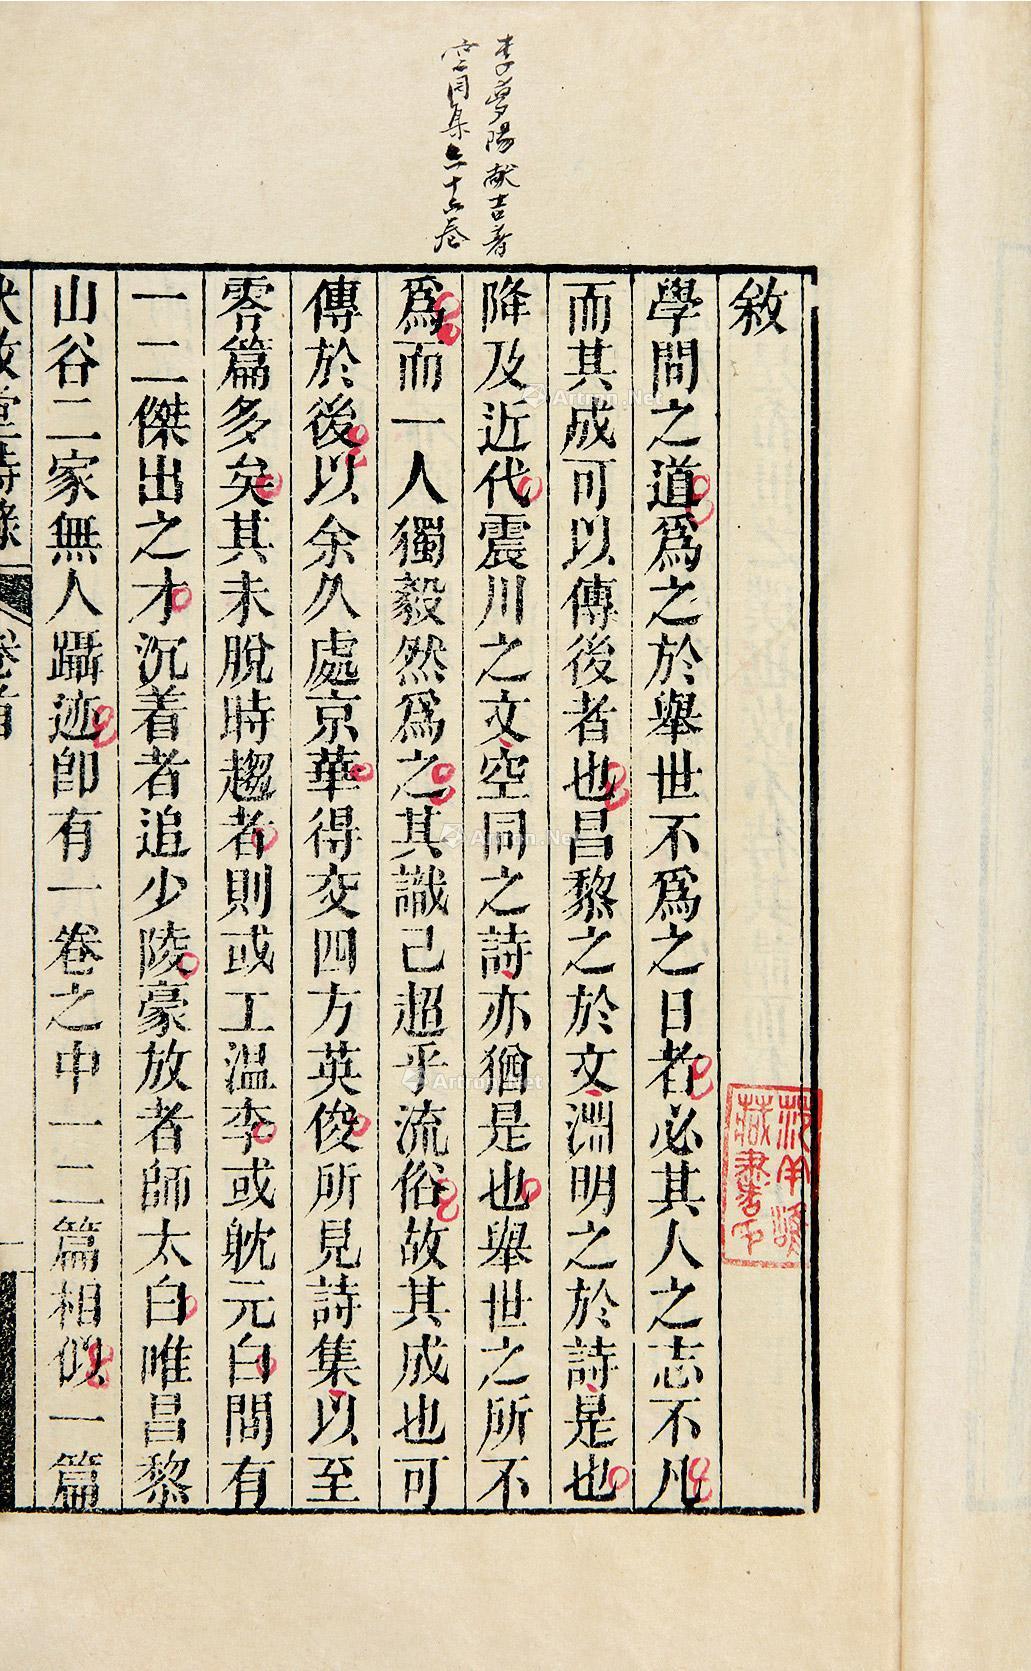 李夢陽献吉著
空同集六十六卷
敘
學問之道爲之於舉世不爲之日者必其人之志不凡
而其成可以傳後者也昌黎之於文淵明之於詩是也
降及近代震川之文空同之詩亦猶是也舉世之所不
爲而一人獨毅然爲之其識己超乎流俗故其成也可
傳於後以余久處京華得交四方英俊所見詩集以至
零篇多矣其未脫時趨者則或工溫李或躭元白間有
一二傑出之才沉着者追少陵豪放者師太白唯昌黎
山谷二家無人躡迹卽有一卷之中一二篇相似一篇
敦堂詩錄 卷首
藏書印
Artron.Net
Artron.Net
Artron.Net